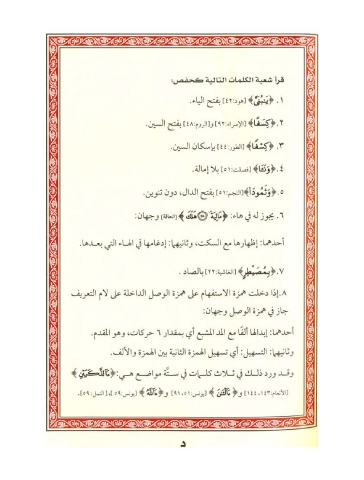 قرأ شعبة الكلمات التالية كحفص:
١. ﴿يَٰبُنَيَّ﴾ [هود:٤٢] بفتح الياء.
٢. ﴿كِسَفًا﴾ [الإسراء:٩٢] و[الروم:٤٨] بفتح السين.
٣. ﴿كِسْفًا﴾ [الطور:٤٤] بإسكان السين.
٤. ﴿وَنَـَٔا﴾ [فصلت:٥١] بلا إمالة.
٥. ﴿وَثَمُودَا۟﴾ [النجم:٥١] بفتح الدال، دون تنوين.
٦. يجوز له في هاء: ﴿مَالِيَهْ ۝ هَلَكَ﴾ [الحاقة] وجهان:
أحدهما: إظهارها مع السكت، وثانيهما: إدغامها في الهاء التي بعدها.
٧. ﴿بِمُصَيْطِرٍ﴾ [الغاشية:٢٢] بالصاد.
٨. إذا دخلت همزة الاستفهام على همزة الوصل الداخلة على لام التعريف
جاز في همزة الوصل وجهان:
أحدهما: إبدالها ألفًا مع المد المشبع أي بمقدار ٦ حركات، وهو المقدم.
وثانيهما: التسهيل: أي تسهيل الهمزة الثانية بين الهمزة والألف.
وقد ورد ذلك في ثلاث كلمات في ستّة مواضع هي: ﴿ءَآلذَّكَرَيْنِ﴾
[الأنعام:١٤٣، ١٤٤] و﴿ءَآلْـَٰٔنَ﴾ [يونس:٥١، ٩١] و﴿ءَآللَّهُ﴾ [يونس:٥٩، النمل:٥٩].
د